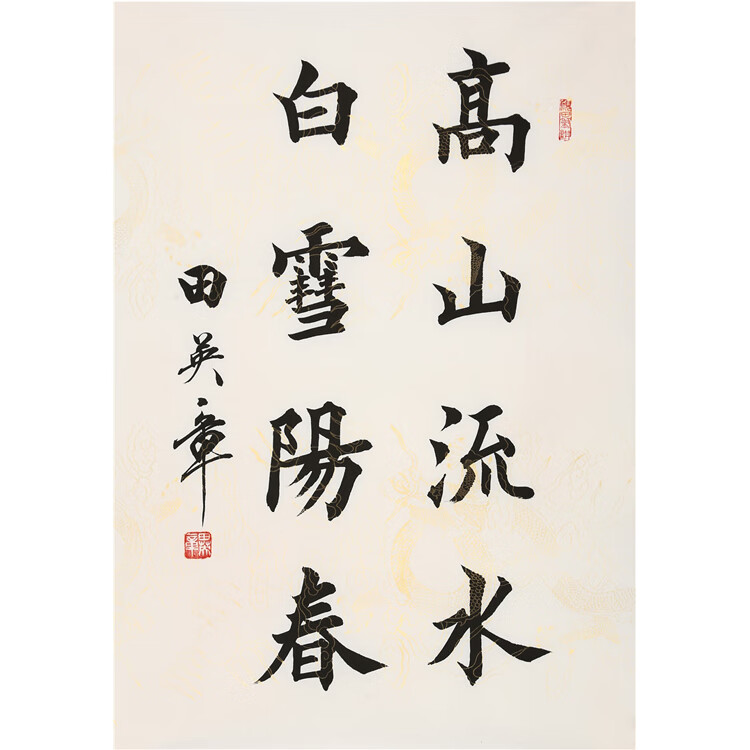 髙山流水
白雪陽春
田英章